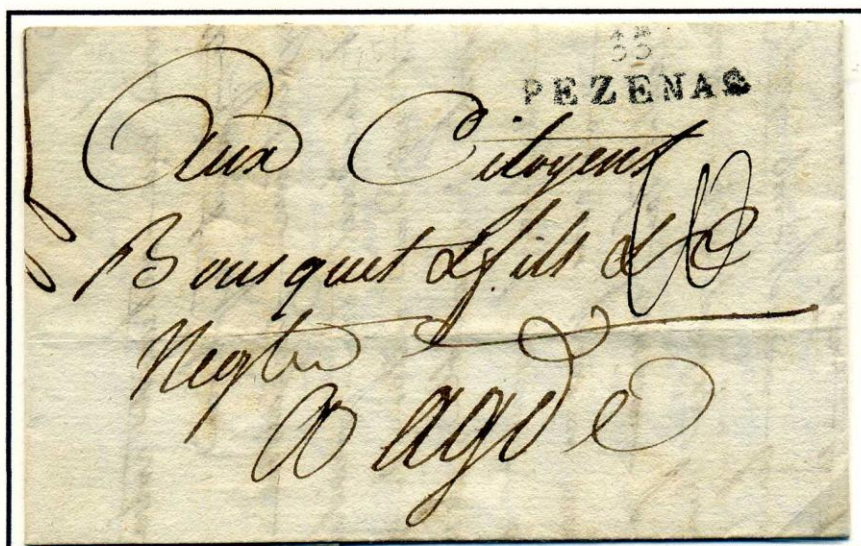 PEZENAS
Aux Citoyens
Bousquet & fils & Ce
Negts
a agde